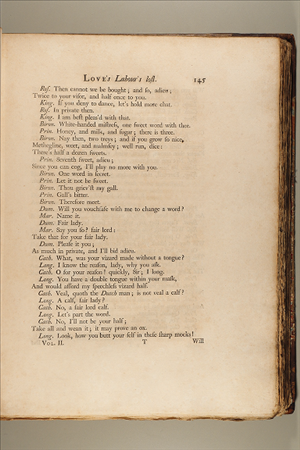 LOVE's Labour's lost. 145
Ros. Then cannot we be bought; and so, adieu;
Twice to your visor, and half once to you.
King. If you deny to dance, let's hold more chat.
Ros. In private then.
King. I am best pleas'd with that.
Biron. White-handed mistress, one sweet word with thee.
Prin. Honey, and milk, and sugar; there is three.
Biron. Nay then, two treys; and if you grow so nice,
Metheglin, wort, and malmsey; well run, dice:
There's half a dozen sweets.
Prin. Seventh sweet, adieu;
Since you can cog, I'll play no more with you.
Biron. One word in secret.
Prin. Let it not be sweet.
Biron. Thou griev'st my gall.
Prin. Gall's bitter.
Biron. Therefore meet.
Dum. Will you vouchsafe with me to change a word?
Mar. Name it.
Dum. Fair lady.
Mar. Say you so? fair lord:
Take that for your fair lady.
Dum. Please it you;
As much in private, and I'll bid adieu.
Cath. What, was your vizard made without a tongue?
Long. I know the reason, lady, why you ask.
Cath. O for your reason! quickly, sir; I long.
Long. You have a double tongue within your mask,
And would afford my speechless vizard half.
Cath. Veal, quoth the Dutch man; is not veal a calf?
Long. A calf, fair lady?
Cath. No, a fair lord calf.
Long. Let's part the word.
Cath. No, I'll not be your half;
Take all and wean it; it may prove an ox.
Long. Look, how you butt your self in these sharp mocks!
VOL. II. T Will